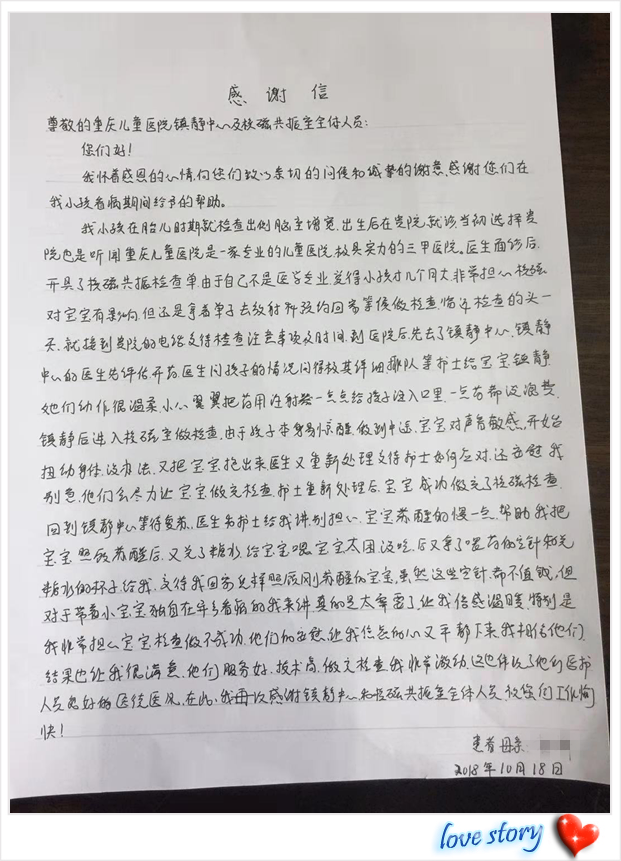 感谢信
尊敬的重庆儿童医院镇静中心及核磁共振室全体人员:
您们好!
我怀着感恩的心情,向您们致以亲切的问候和诚挚的谢意,感谢您们在
我小孩看病期间给予的帮助。
我小孩在胎儿时期就检查出侧脑室增宽,出生后在贵院就诊,当初选择贵
院也是听闻重庆儿童医院是一家专业的儿童医院,极具实力的三甲医院。医生面诊后,
开具了核磁共振检查单,由于自己不是医学专业,觉得小孩才几个月大,非常担心核磁
对宝宝有影响,但还是拿着单子去放射科预约回家等候做检查,临近检查的头一
天,就接到贵院的电话交待检查注意事项及时间,到医院后,先去了镇静中心,镇静
中心的医生先评估,开药,医生问孩子的情况问得极其详细,排队等护士给宝宝镇静,
她们动作很温柔,小心翼翼把药用注射器一点点给孩子注入口里,一点药都没浪费,
镇静后进入核磁室做检查,由于孩子本身易惊醒,做到中途,宝宝对声音敏感,开始
扭动身体,没办法,又把宝宝抱出来,医生又重新处理,交待护士如何应对,还安慰我
别急,他们会尽力让宝宝做完检查,护士重新处理后,宝宝成功做完了核磁检查,
回到镇静中心等待复苏,医生和护士给我讲别担心,宝宝苏醒的慢一点,帮助我把
宝宝照 苏醒后,又兑了糖水,给宝宝喂,宝宝太困没吃,后又拿了喂药的空针和兑
糖水的杯子给我,交待我回家怎样照顾刚苏醒的宝宝,虽然这些空针、都不值钱,但
对于带着小宝宝独自在 看病的我来讲真的是太需要了,让我倍感温暖,特别是
我非常担心宝宝检查做不成功,他们的安慰,让我焦急的心又平静下来,我相信他们,
结果也让我很满意,他们服务好,技术高,做完检查我非常激动,这也体现了他们医护
人员良好的医德医风,在此,我再次感谢镇静中心和核磁共振室全体人员,祝您们工作愉
快!
患者母亲:
2018年10月18日
love story